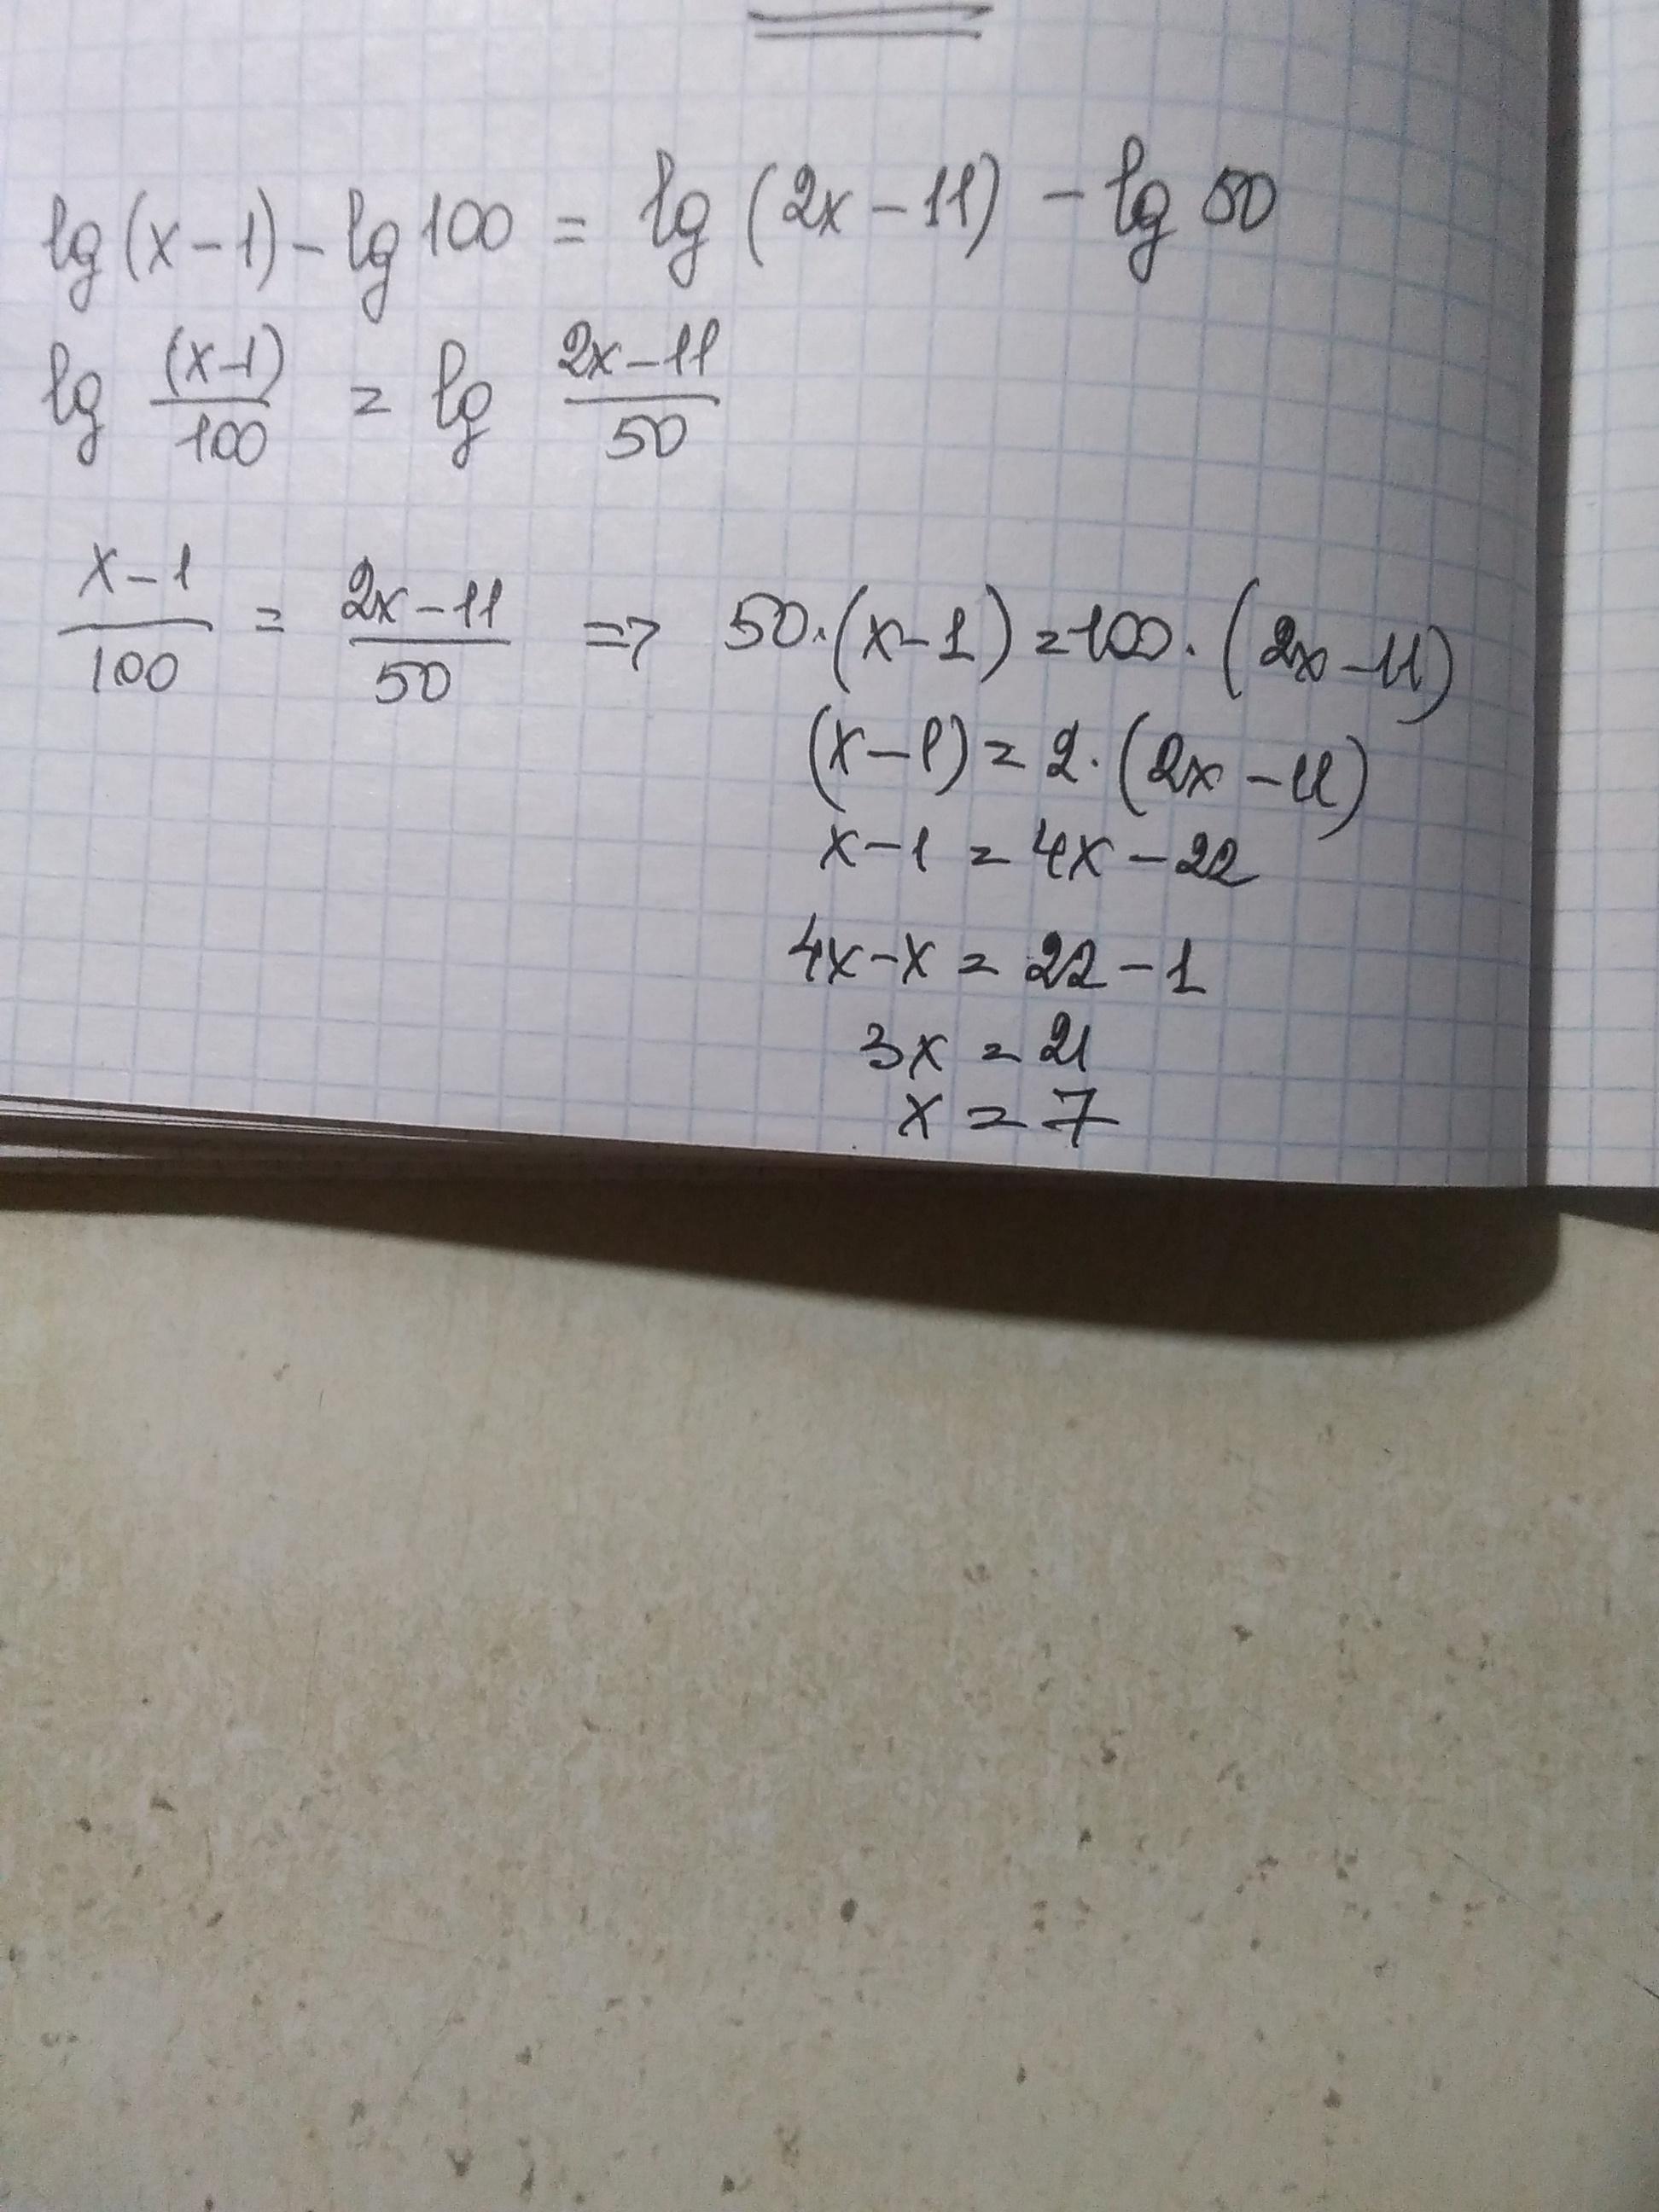 lg(x-1)-lg100 = lg(2x-11)-lg50
lg (x-1)/100 = lg 2x-11/50
x-1/100 = 2x-11/50 => 50·(x-1)=100·(2x-11)
(x-1)=2·(2x-11)
x-1=4x-22
4x-x=22-1
3x=21
x=7